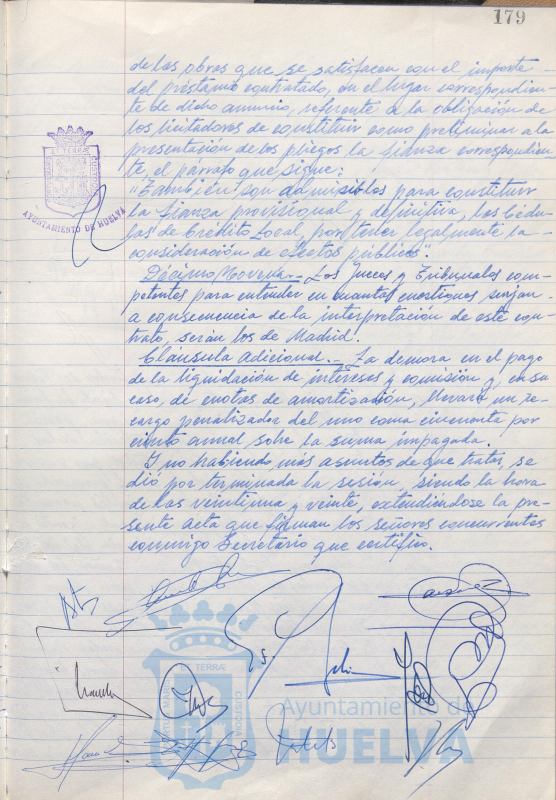 179
de las obras que se satisfacen con el importe
del préstamo contratado, en el lugar correspondien-
te de dicho anuncio, referente a la obligación de
los licitadores de constituir como preliminar a la
presentación de los pliegos la fianza correspondien-
te, el párrafo que sigue:
"También son admisibles para constituir
la fianza provisional y definitiva, las Cédu-
las de Crédito Local, por tener legalmente la
consideración de efectos públicos".
Décimo Novena.- Los Jueces y Tribunales com-
petentes para entender en cuantas cuestiones surjan
a consecuencia de la interpretación de este con-
trato, serán los de Madrid.
Cláusula adicional.- La demora en el pago
de la liquidación de intereses y comisión y, en su
caso, de cuotas de amortización, llevará un re-
cargo penalizador del uno coma cincuenta por
ciento anual, sobre la suma impagada.
Y no habiendo más asuntos de que tratar, se
dió por terminada la sesión, siendo la hora
de las veintiuna y veinte, extendiéndose la pre-
sente acta que firman los señores concurrentes
conmigo Secretario que certifico.
AYUNTAMIENTO DE HUELVA
TERRÆ
CUSTODIA
Ayuntamiento de
HUELVA